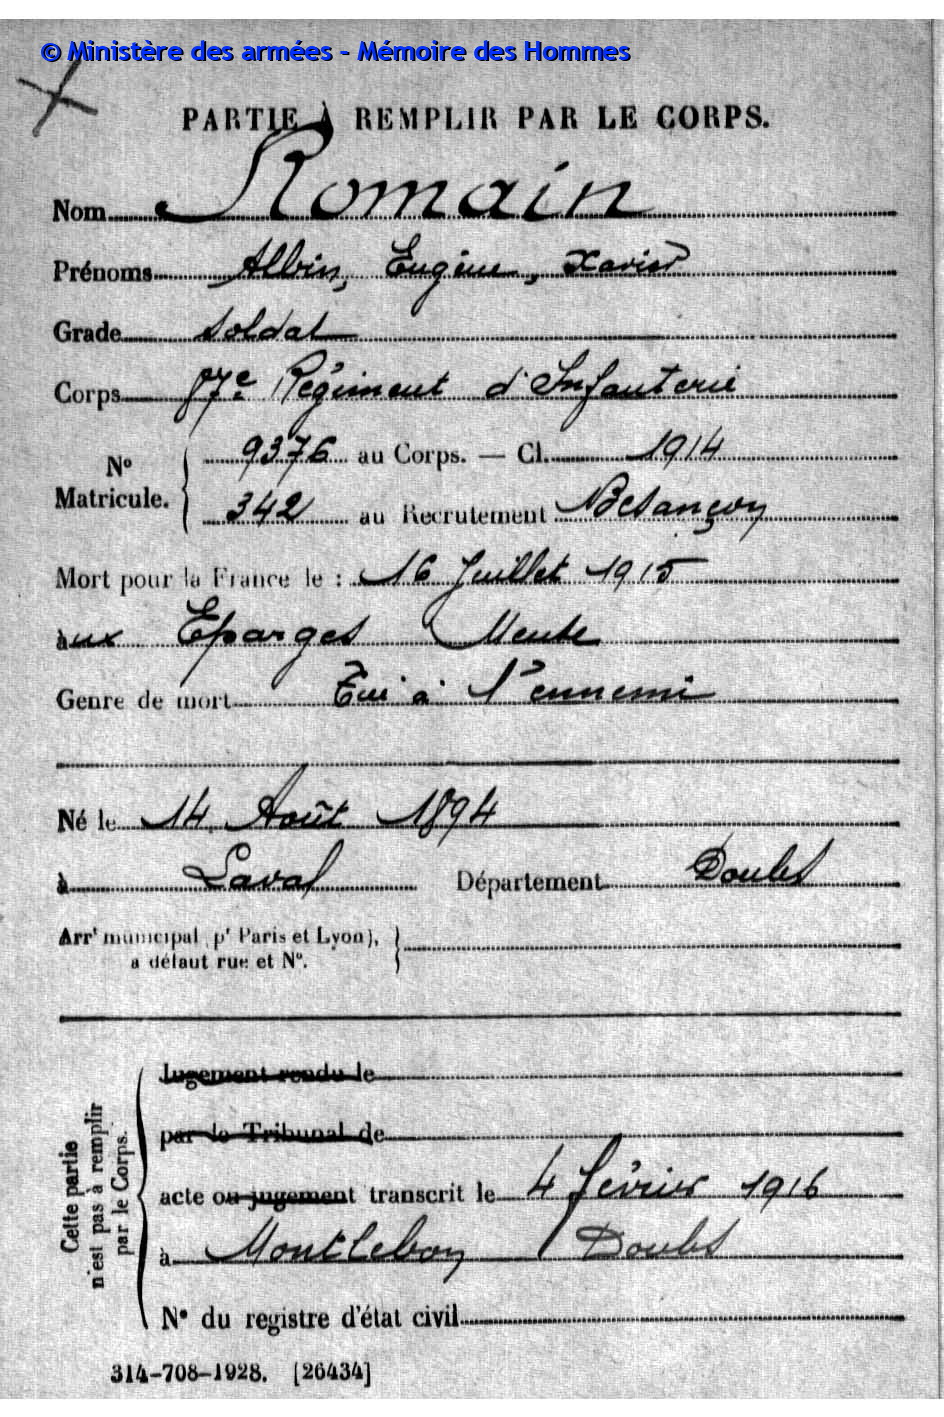 © Ministère des armées - Mémoire des Hommes
PARTIE À REMPLIR PAR LE CORPS.
Nom Romain
Prénoms Albin, Eugène, Xavier
Grade Soldat
Corps 87e Régiment d'Infanterie
N° Matricule. 9376 au Corps. — Cl. 1914
342 au Recrutement Besançon
Mort pour la France le : 16 Juillet 1915
à ux Eparges Meuse
Genre de mort Tué à l'ennemi
Né le 14 Août 1894
à Laval Département Doubs
Arrt municipal (pr Paris et Lyon),
à défaut rue et N°.
Cette partie
n'est pas à remplir
par le Corps.
Jugement rendu le
par le Tribunal de
acte ou jugement transcrit le 4 février 1916
à Montlebon Doubs
N° du registre d'état civil
314-708-1928. [26434]